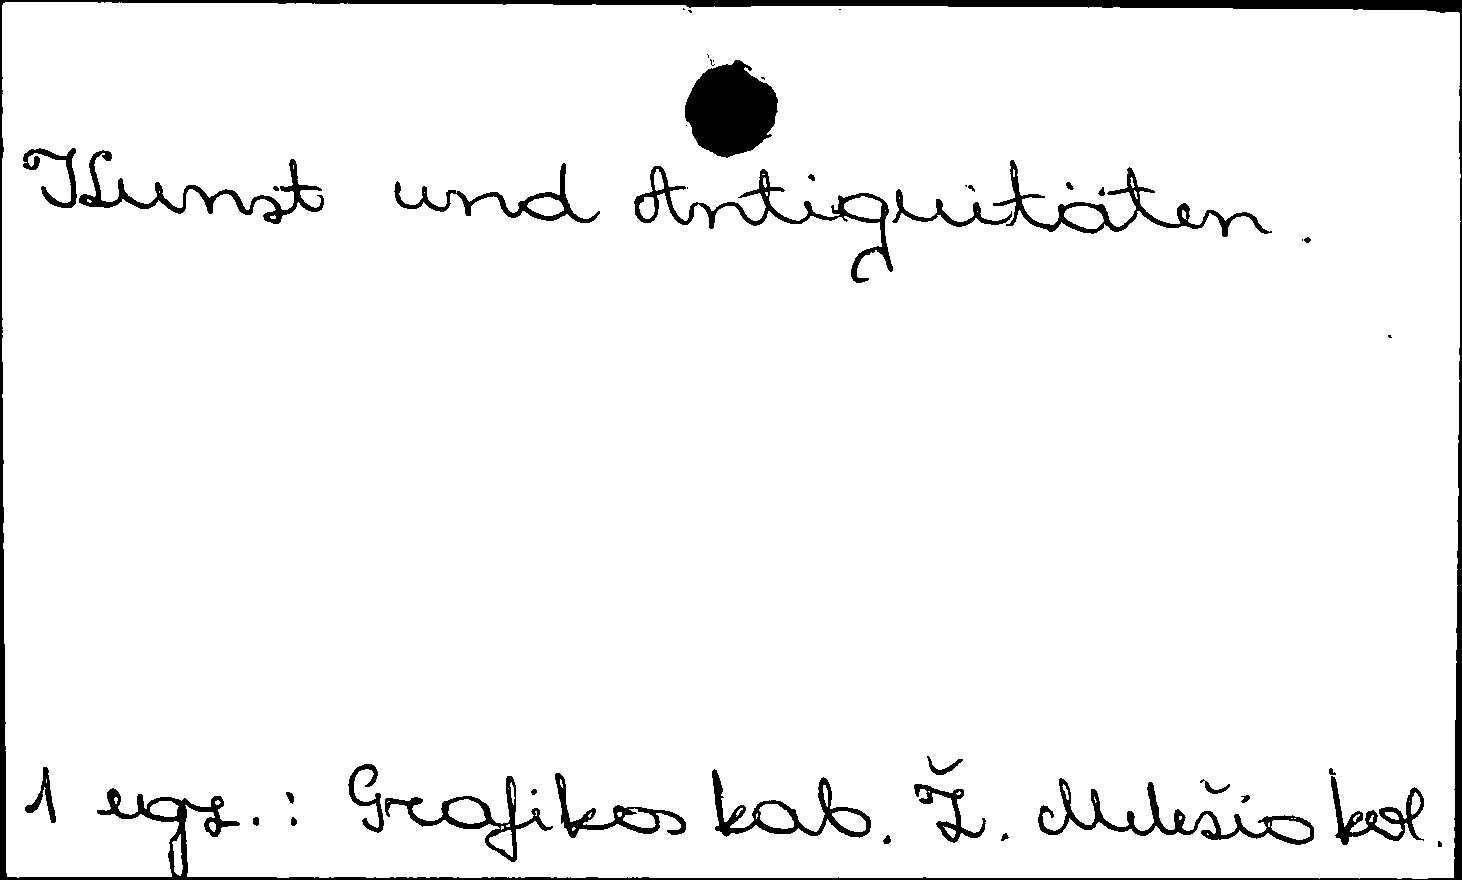 Kunst und Antiquitäten.
1 egz.: Grafikos kab. Ž. Mikšio kol.